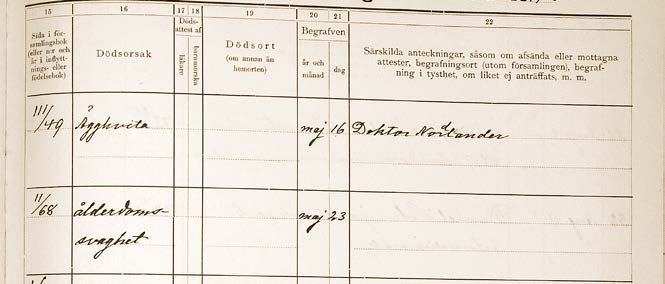 15 16 17 18 19 20 21 22
Sida i församlingsbok (eller n:r och år i inflyttnings- eller födelsebok)
Dödsorsak
Dödsattest af
läkare
barnmorska
Dödsort
(om annan än hemorten)
Begrafven
år och månad
dag
Särskilda anteckningar, såsom om afsända eller mottagna
attester, begrafningsort (utom församlingen), begraf-
ning i tysthet, om liket ej anträffats, m. m.
III/49 Ägghvita maj 16 Doktor Norlander
II/68 ålderdoms- maj 23
svaghet